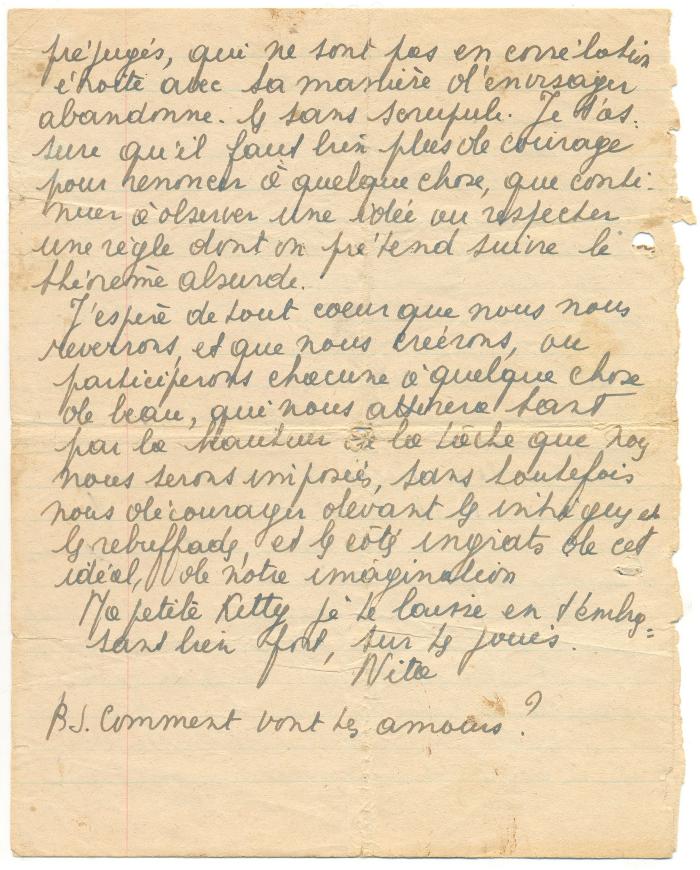 préjugés, qui ne sont pas en corrélation
étroite avec sa manière d'envisager
abandonne-les sans scrupule. Je t'as-
sure qu'il faut bien plus de courage
pour renoncer à quelque chose, que conti-
nuer à observer une idée ou respecter
une règle dont on prétend suivre le
théorème absurde.
J'espère de tout coeur que nous nous
reverrons, et que nous créérons, ou
participerons chacune à quelque chose
de beau, qui nous attirera tant
par la hauteur de la tâche que nous
nous serons imposées, sans toutefois
nous décourager devant les intrigues et
les rebuffades, et le côté ingrats de cet
idéal, de notre imagination
Ma petite Ketty je te laisse en t'embras-
sant bien fort, sur tes joues.
Nita
P.S. Comment vont tes amours ?